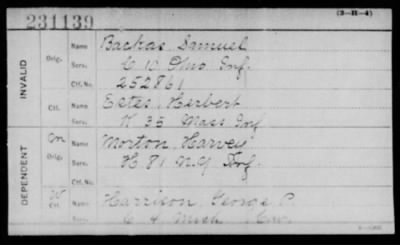 231139
(3-H-4)
INVALID
Orig.
Name Backas, Samuel
Serv. C 10 Ohio Inf.
Ctf. No. 252861
Ctf.
Name Estes, Herbert
Serv. K 35 Mass Inf
DEPENDENT
Orig.
Name Morton, Harvey
Serv. H 81 N.Y. Inf.
Ctf. No.
Ctf.
Name Harrison, George P.
Serv. C 4 Mich Cav.